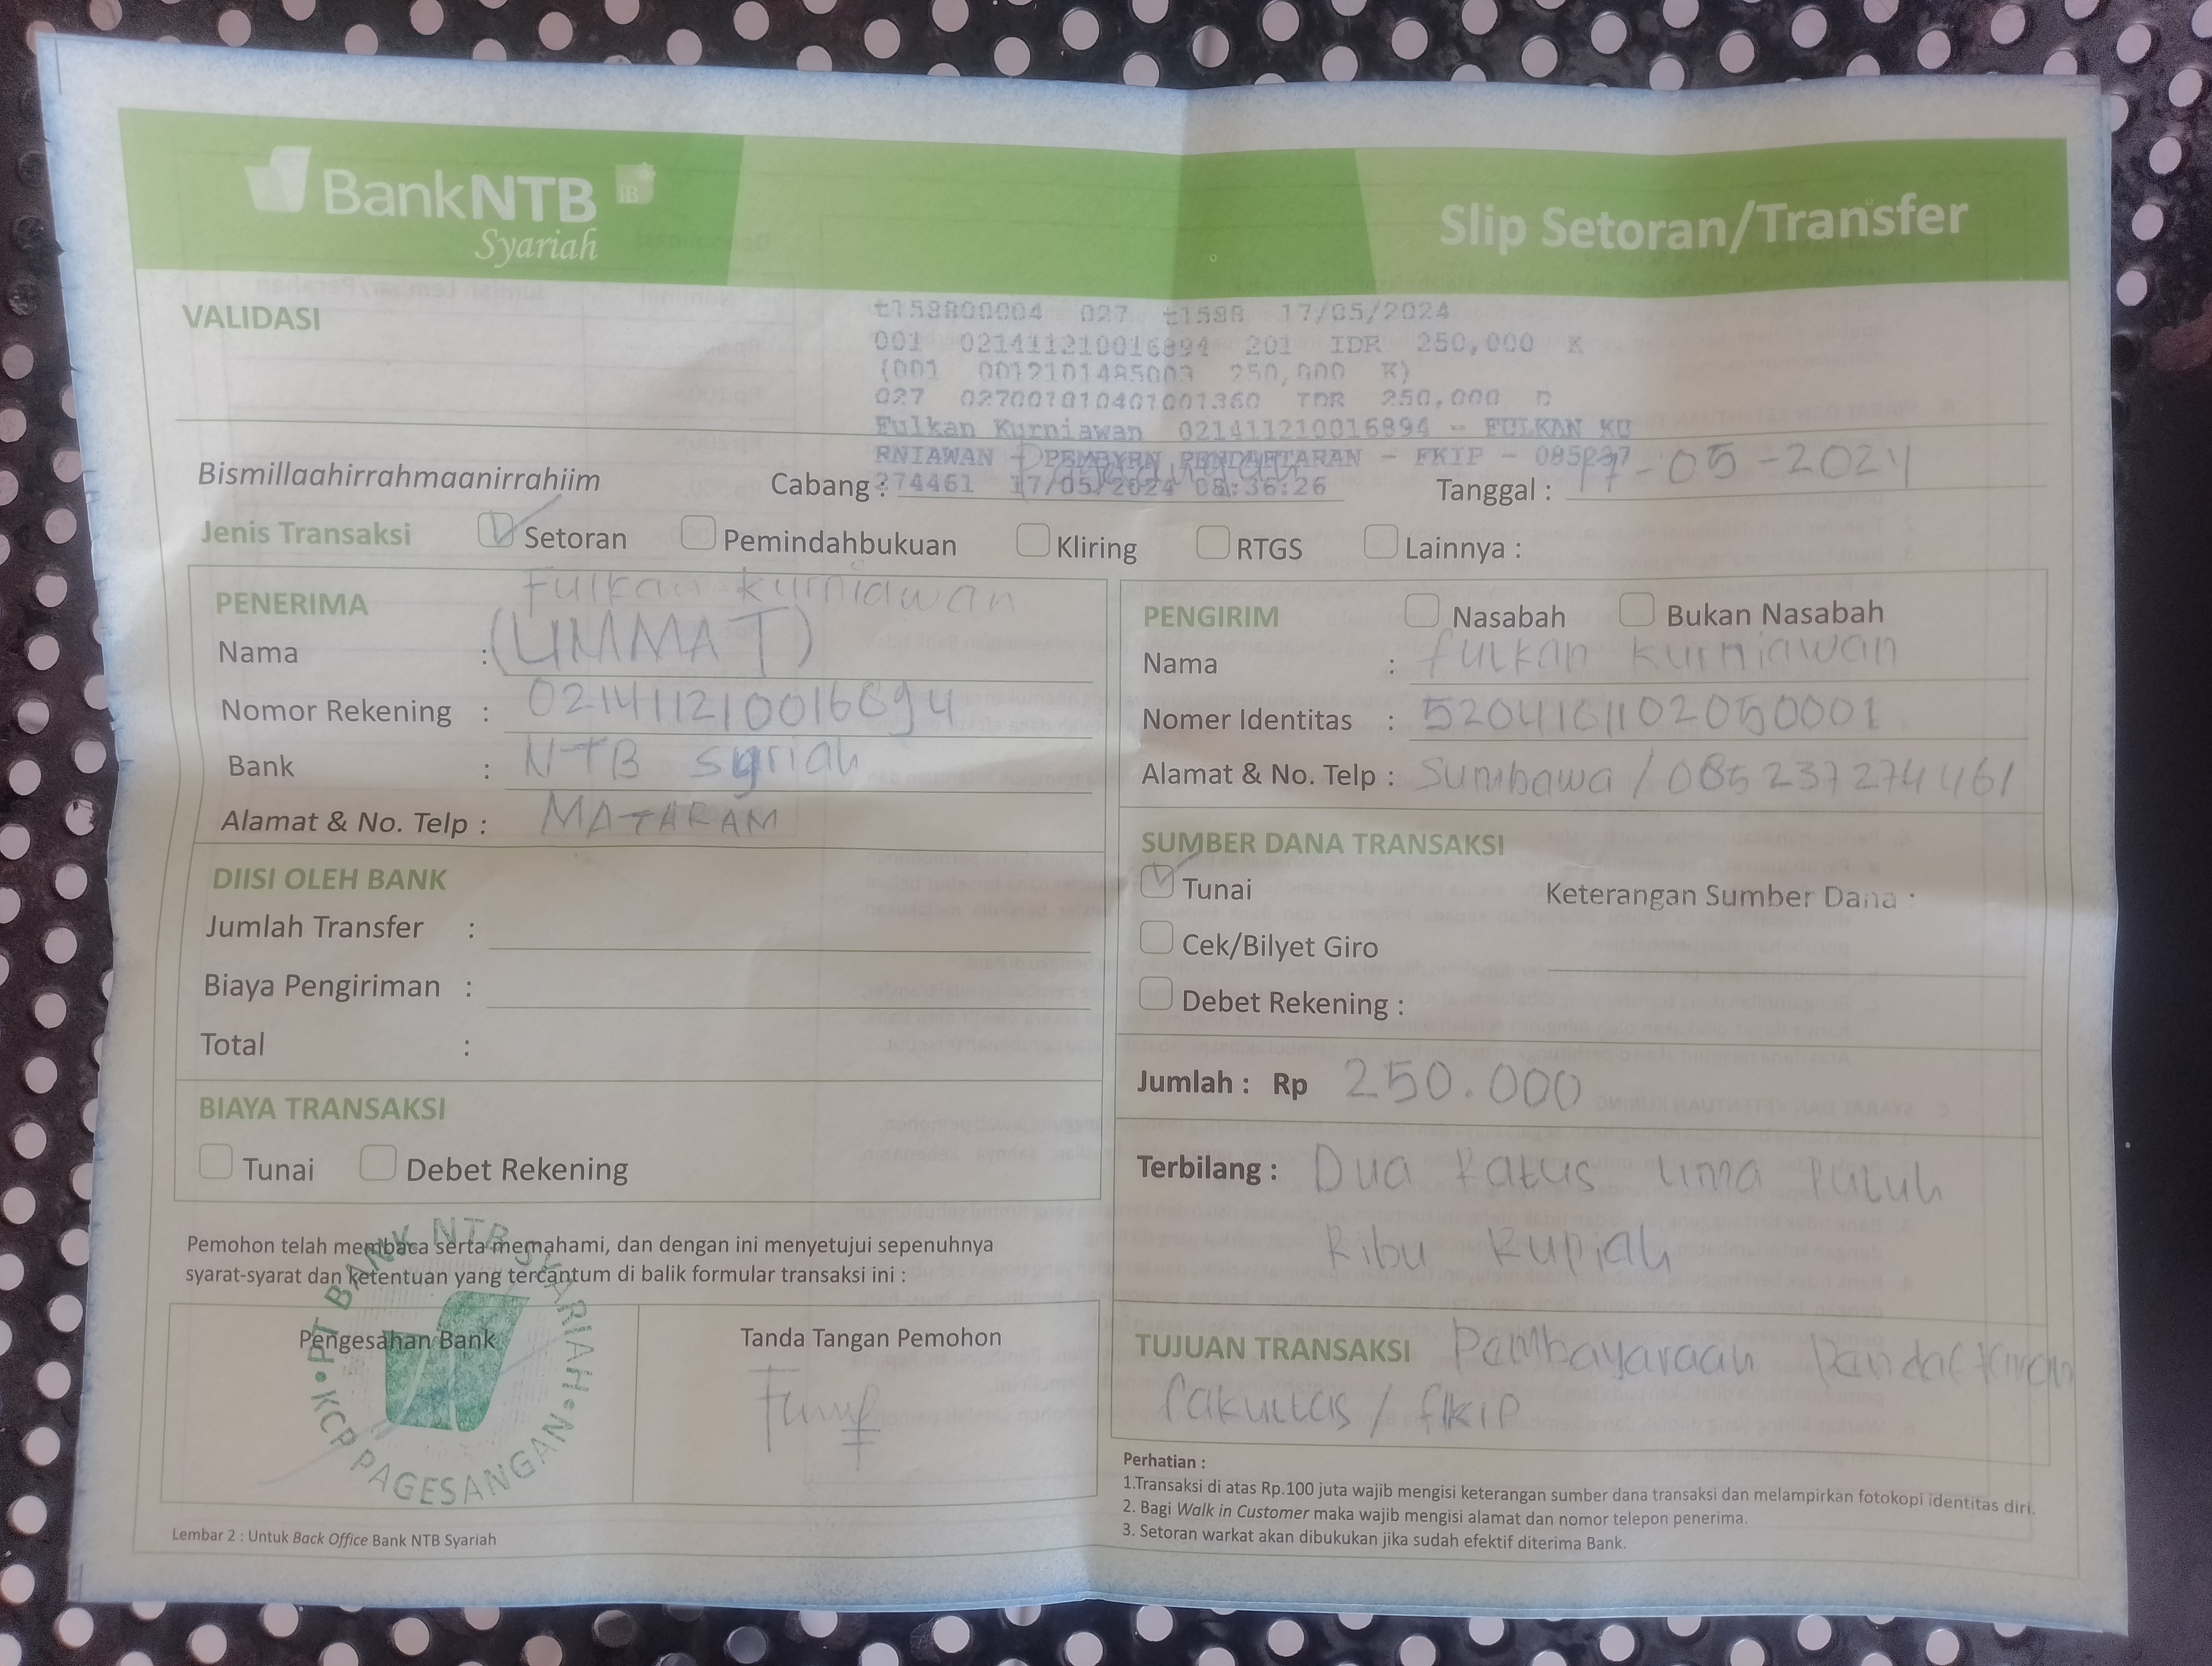 BankNTB iB
Syariah
Slip Setoran/Transfer
VALIDASI
t158800004 027 t1588 17/05/2024
001 021411210016894 201 IDR 250,000 K
(001 0012101485003 250,000 K)
027 027001010401001360 IDR 250,000 D
Fulkan Kurniawan 021411210016894 - FULKAN KU
RNIAWAN - PEMBYRN PENDAFTARAN - FKIP - 085237
274461 17/05/2024 08:36:26
Bismillaahirrahmaanirrahiim
Cabang :
Tanggal : 17-05-2024
Jenis Transaksi Setoran Pemindahbukuan Kliring RTGS Lainnya :
PENERIMA
Fulkan kurniawan
Nama : (UMMAT)
Nomor Rekening : 021411210016894
Bank : NTB syriah
Alamat & No. Telp : MATARAM
DIISI OLEH BANK
Jumlah Transfer :
Biaya Pengiriman :
Total :
BIAYA TRANSAKSI
Tunai Debet Rekening
PENGIRIM Nasabah Bukan Nasabah
Nama : fulkan kurniawan
Nomer Identitas : 5204161102050001
Alamat & No. Telp : Sumbawa / 085237274461
SUMBER DANA TRANSAKSI
Tunai
Keterangan Sumber Dana :
Cek/Bilyet Giro
Debet Rekening :
Jumlah : Rp 250.000
Terbilang : Dua Ratus lima Puluh
Ribu Rupiah
TUJUAN TRANSAKSI Pembayaraan Pandaftaran
fakultas / fkip
Pemohon telah membaca serta memahami, dan dengan ini menyetujui sepenuhnya
syarat-syarat dan ketentuan yang tercantum di balik formular transaksi ini :
Pengesahan Bank
Tanda Tangan Pemohon
PT BANK NTB SYARIAH
KCP PAGESANGAN
Perhatian :
1.Transaksi di atas Rp.100 juta wajib mengisi keterangan sumber dana transaksi dan melampirkan fotokopi identitas diri.
2. Bagi Walk in Customer maka wajib mengisi alamat dan nomor telepon penerima.
3. Setoran warkat akan dibukukan jika sudah efektif diterima Bank.
Lembar 2 : Untuk Back Office Bank NTB Syariah